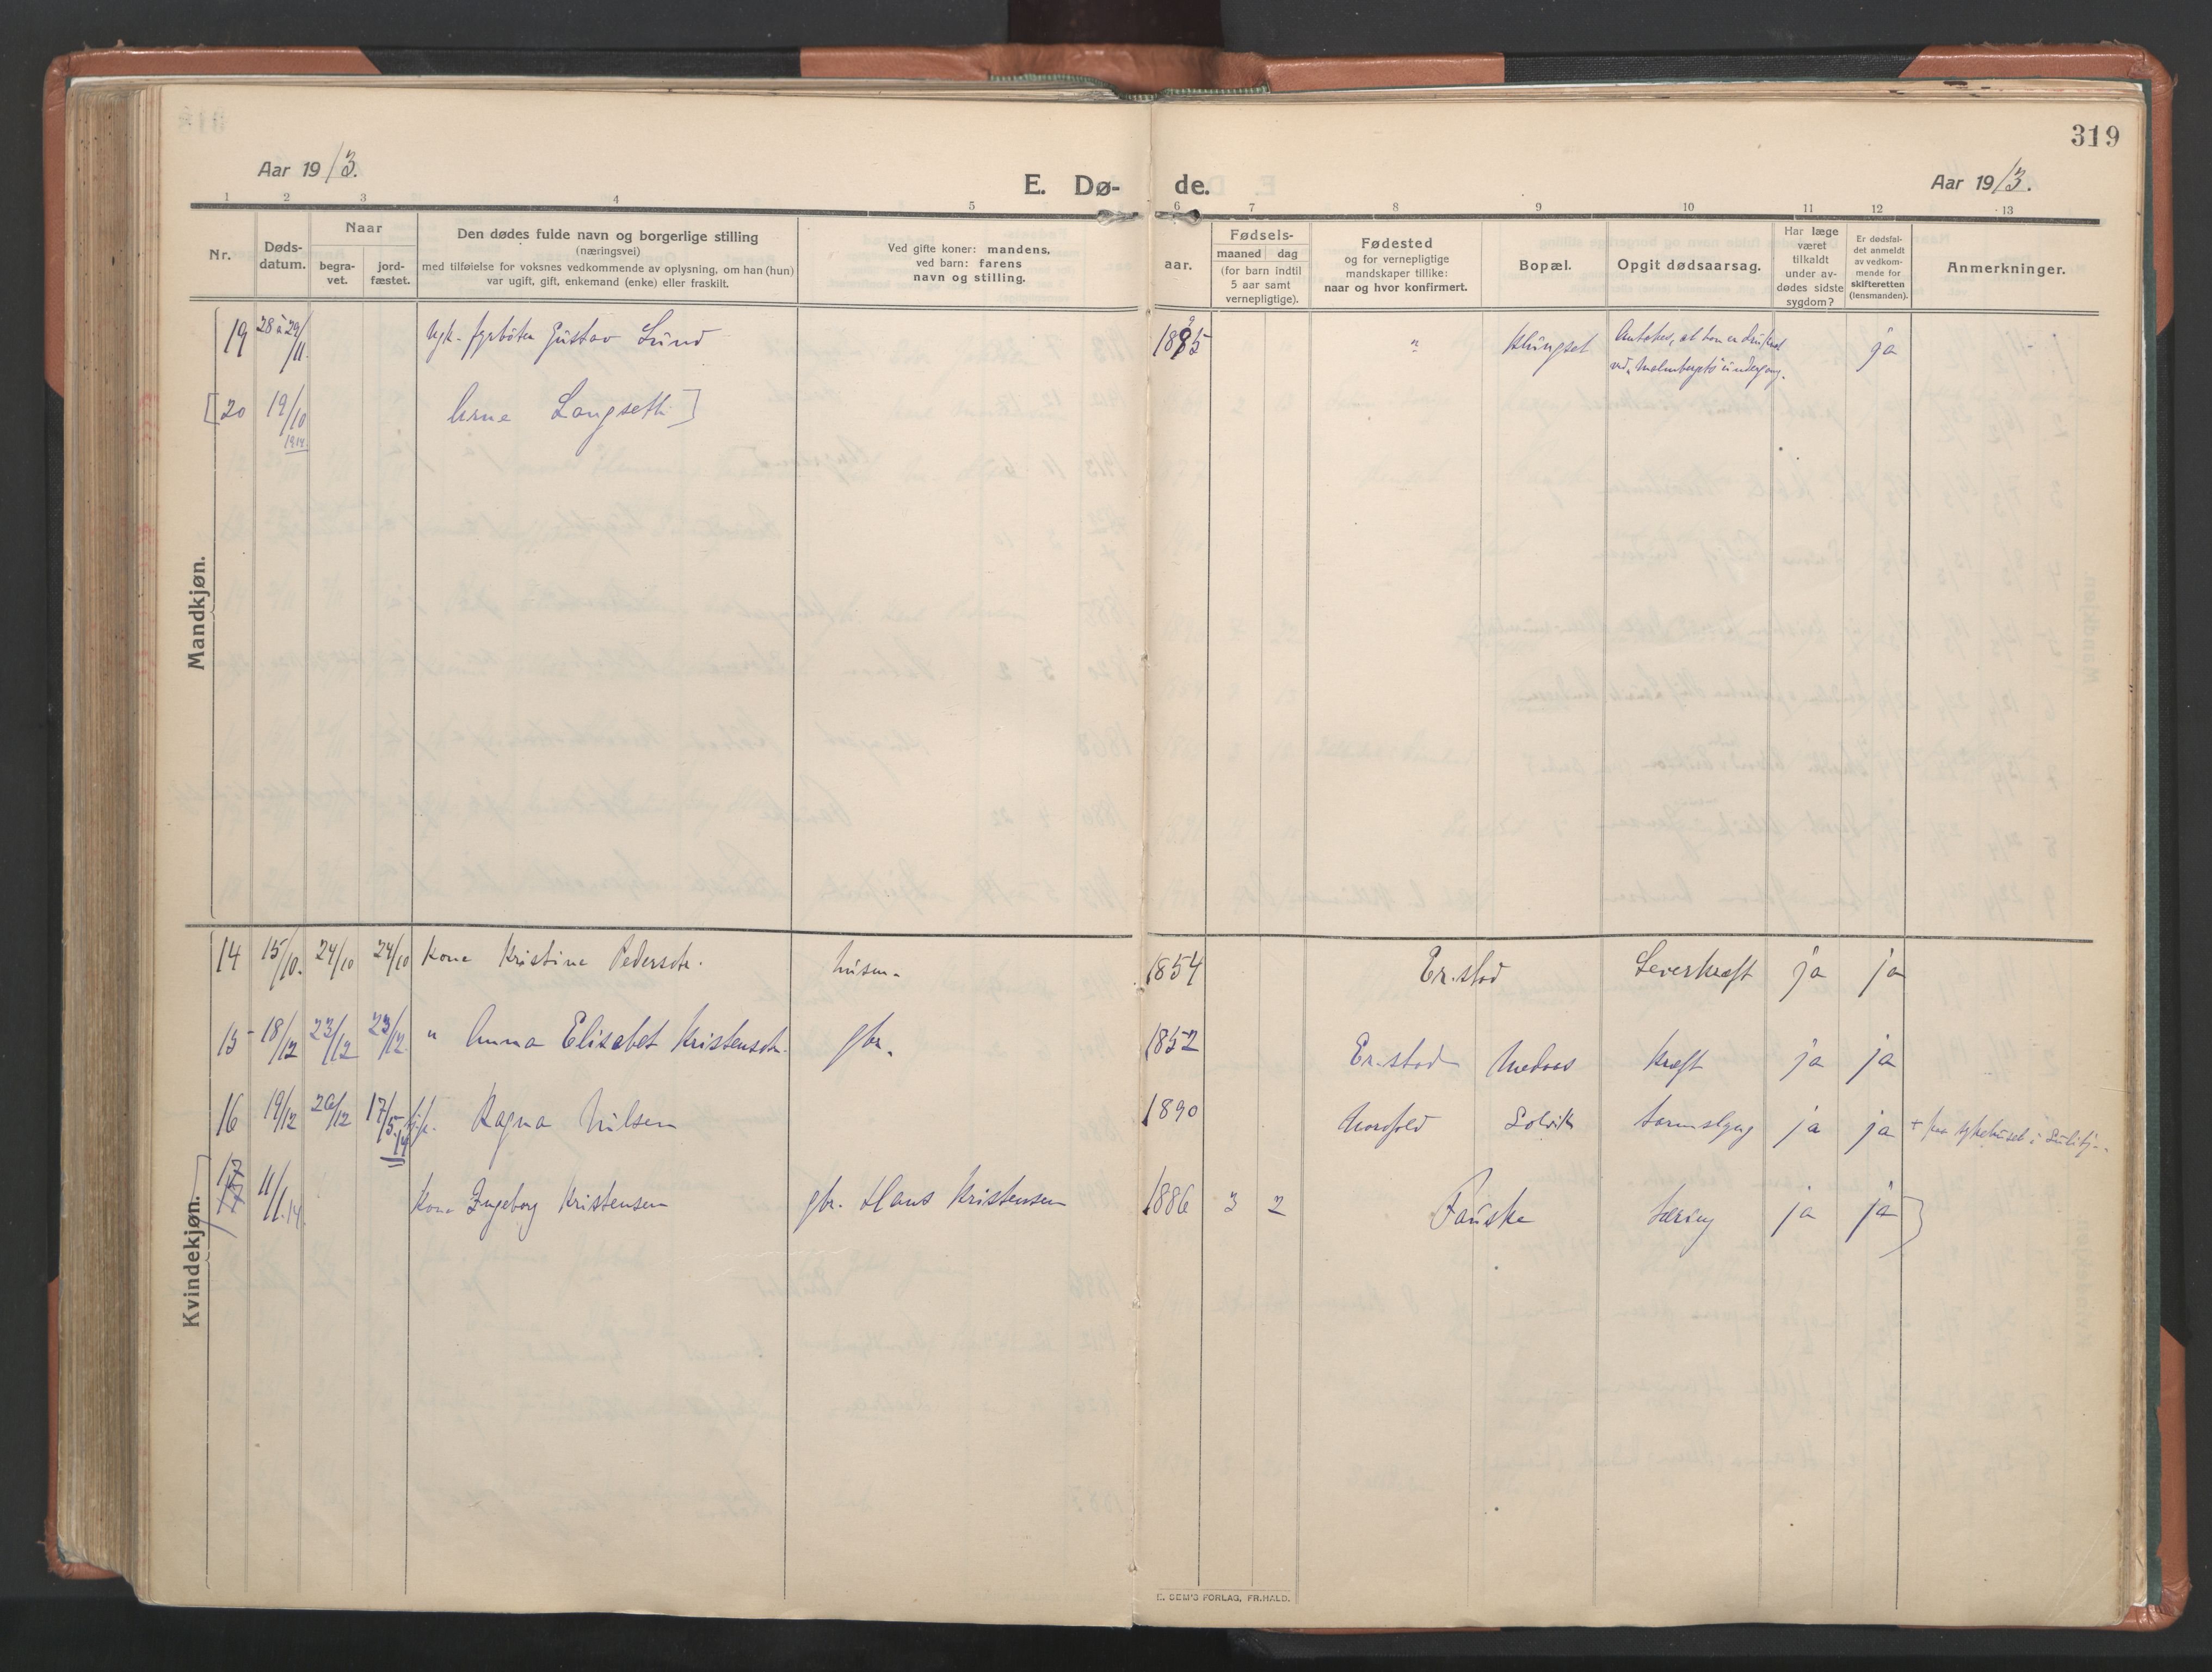 319
Aar 1913.
E. Dø- de.
Aar 1913.
1 2 3 4 5 6 7 8 9 10 11 12 13
Nr.
Døds-
datum.
Naar
begra-
vet.
jord-
fæstet.
Den dødes fulde navn og borgerlige stilling
(næringsvei)
med tilføielse for voksnes vedkommende av oplysning, om han (hun)
var ugift, gift, enkemand (enke) eller fraskilt.
Ved gifte koner: mandens,
ved barn: farens
navn og stilling.
aar.
Fødsels-
maaned dag
(for barn indtil
5 aar samt
vernepligtige).
Fødested
og for vernepligtige
mandskaper tillike:
naar og hvor konfirmert.
Bopæl.
Opgit dødsaarsag.
Har læge
været
tilkaldt
under av-
dødes sidste
sygdom?
Er dødsfal-
det anmeldt
av vedkom-
mende for
skifteretten
(lensmanden).
Anmerkninger.
Mandkjøn.
19 28 a 29/11. Ugk. fyrbøter Gustav Lund 1895 " Klungset Antakes, at han er druknet ja
ved "Malmbergets" undergang.
[20 19/10 Arne Langseth]
1914.
Kvindekjøn.
14 15/10. 24/10 24/10 Kone Kristine Pedersdtr. husm. 1854 Er.stad Leverkræft ja ja
15 18/12 23/12 23/12. " Anna Elisabet Kristensdtr. gbr. 1852 Er.stad Medaas Kræft ja ja
16 19/12 20/12 17/5.14 Ragna Nilsen 1890 Nordfold Solvik tarmslyng ja ja + paa sykehuset i Sulitj..
17 11/1.14. Kone Ingeborg Kristensen gbr. Hans Kristensen 1886 3 2 Fauske tæring ja ja]
E. SEM'S FORLAG, FR.HALD.